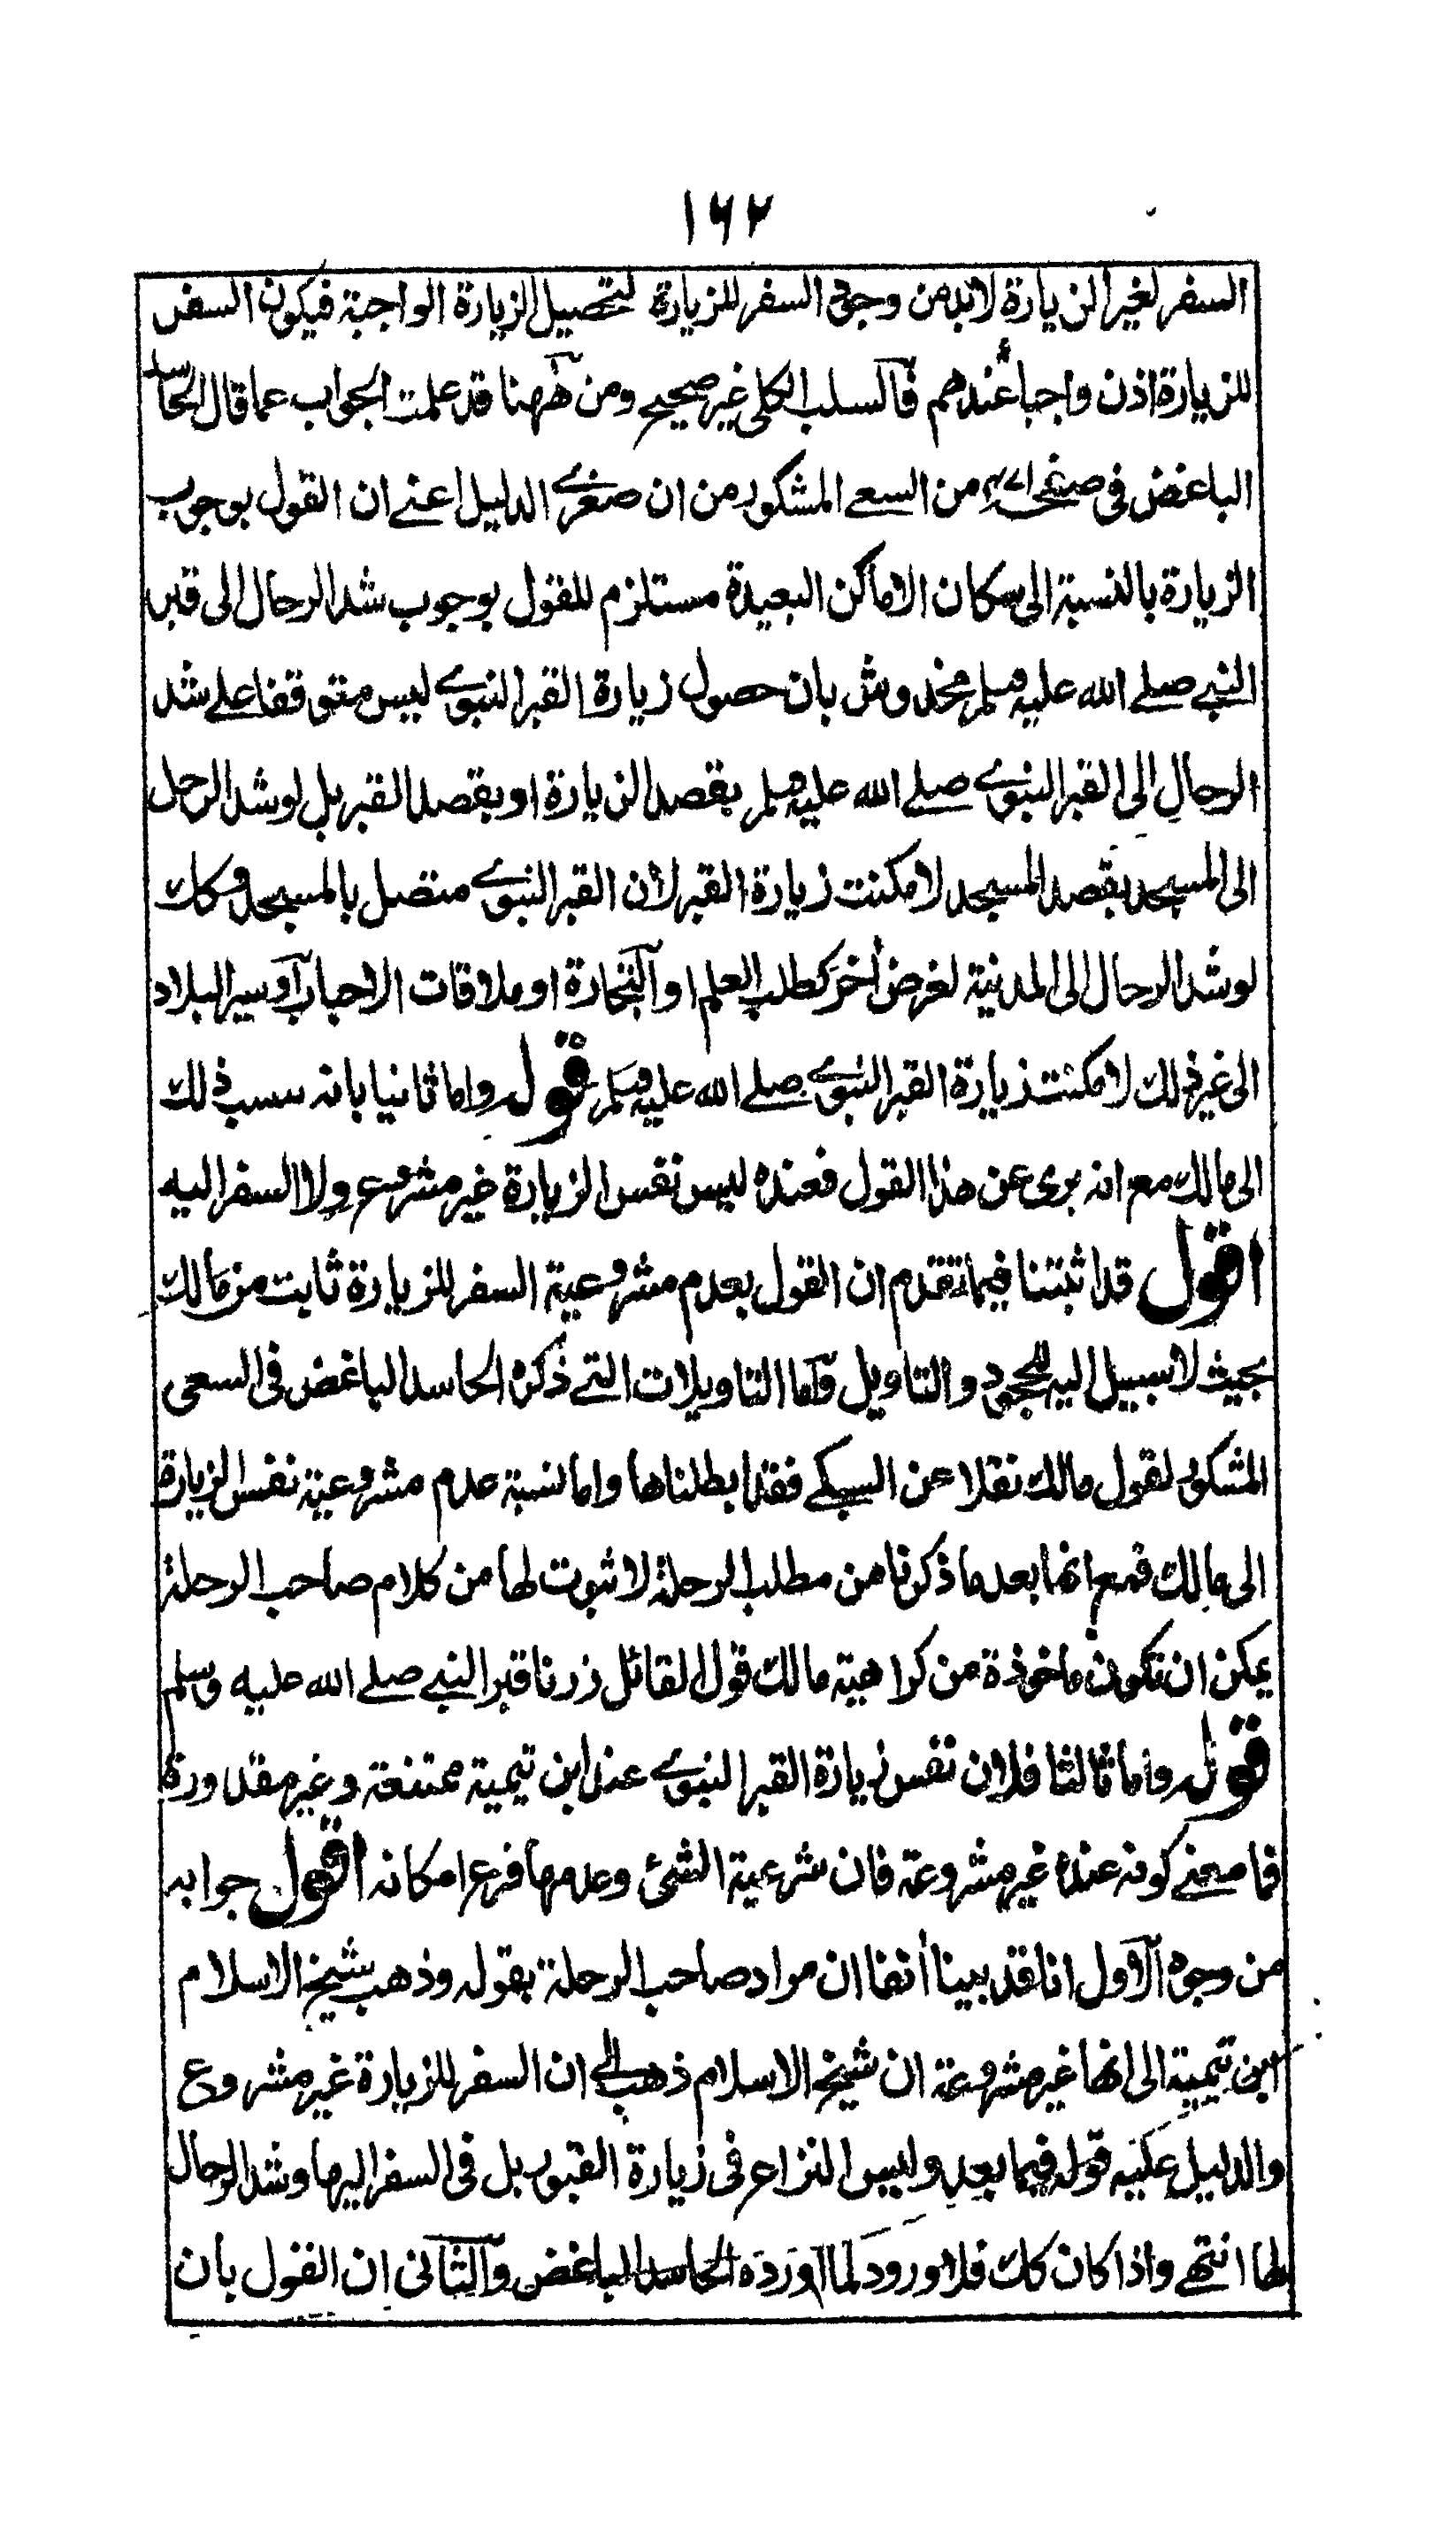 ١٦٢
السفر لغير الزيارة لابد من وجوب السفر للزيارة لتحصيل الزيارة الواجبة فيكون السفر
للزيارة اذن واجبا عندهم فالسلب الكلى غير صحيح ومن ههنا قد علمت الجواب عما قال الحاسد
الباغض فى صفحة من السعے المشكور من ان صغرے الدليل اعنے ان القول بوجوب
الزيارة بالنسبة الى سكان الاماكن البعيدة مستلزم للقول بوجوب شد الرحال الى قبر
النبے صلے الله عليه وسلم مخدوش بان حصول زيارة القبر النبوے ليس متوقفا علے شد
الرحال الى القبر النبوے صلے الله عليه وسلم بقصد الزيارة او بقصد القبر بل لو شد الرحل
الى المسجد بقصد المسجد لامكنت زيارة القبر لان القبر النبوے متصل بالمسجد وكك
لو شد الرحال الى المدنية لغرض أخر كطلب العلم او التجارة او ملاقات الاحباب أو سير البلاد
الى غير ذلك لامكنت زيارة القبر النبوے صلے الله عليه وسلم قوله واما ثانيا بانه سسب ذلك
الى مالك مع انه برى عن هذا القول فعنده ليس نفس الزيارة غير مشروع ولا السفر اليه
اقول قد اثبتنا فيما تقدم ان القول بعدم مشروعية السفر للزيارة ثابت من مالك
بحيث لا سبيل اليه للجحود والتاويل وأما التاويلات التے ذكره الحاسد الباغض فى السعى
المشكور لقول مالك نقلا عن السبكے فقد ابطلناها واما نسبة عدم مشروعية نفس الزيارة
الى مالك فمع انها بعد ما ذكرنا من مطلب الرحلة لا ثبوت لها من كلام صاحب الرحلة
يمكن ان تكون ماخوذة من كراهية مالك قول القائل زرنا قبر النبے صلے الله عليه وسلم
قوله واما ثالثا فلان نفس زيارة القبر النبوے عند ابن تيمية ممتنعة وغير مقدورة
فما معنے كونه عنده غير مشروعة فان شرعية الشئ وعدمها فرع امكانه اقول جوابه
من وجوه الأول انا قد بينا أنفا ان مراد صاحب الرحلة بقوله وذهب شيخ الاسلام
ابن تيمية الى انها غير مشروعة ان شيخ الاسلام ذهب الے ان السفر للزيارة غير مشروع
والدليل عليه قوله فيما بعد وليس النزاع فى زيارة القبور بل فى السفر اليها وشد الرحال
لها انتهے واذا كان كك فلا ورود لما اورده الحاسد الباغض والثانى ان القول بان